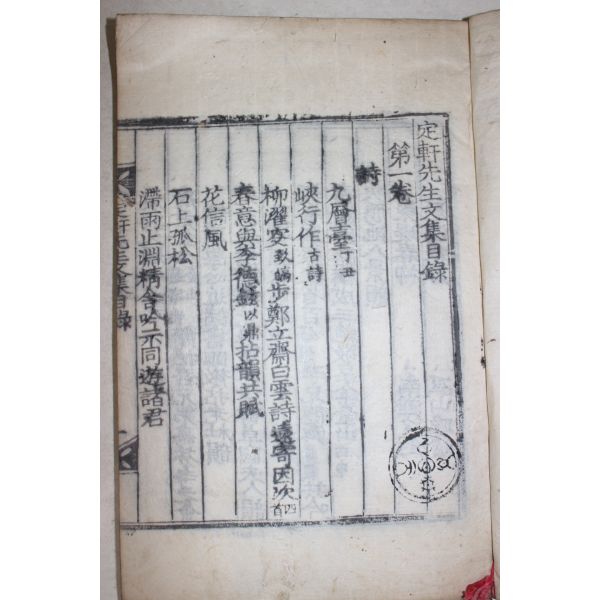 定軒先生文集目錄
第一卷
詩
九層臺丁丑
峽行作古詩
柳濯安致皜步鄭立齋白雲詩遠寄因次四首
春意與李德鉉以鼎拈韻共賦
花信風
石上孤松
滯雨止淵精舍吟示同遊諸君
定軒先生文集目錄